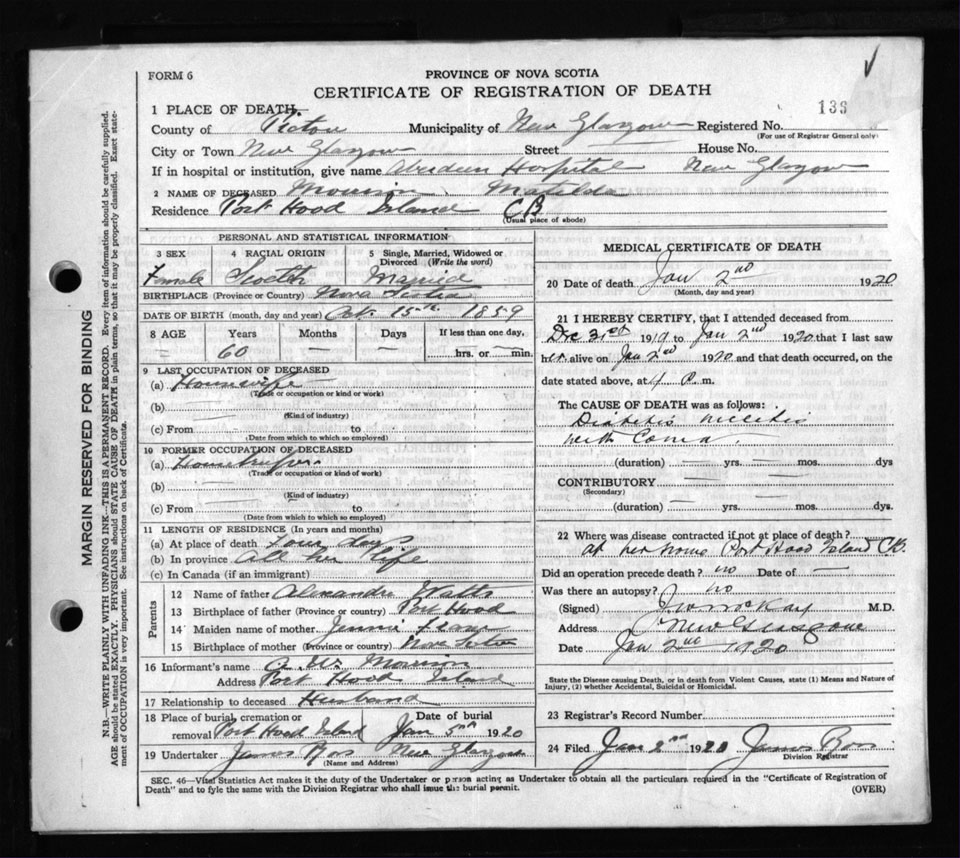 FORM 6
PROVINCE OF NOVA SCOTIA
CERTIFICATE OF REGISTRATION OF DEATH
1 PLACE OF DEATH. 133
County of Pictou Municipality of New Glasgow Registered No.
(For use of Registrar General only)
City or Town New Glasgow Street — House No.
If in hospital or institution, give name Aberdeen Hospital New Glasgow
2 NAME OF DECEASED Morrison Matilda
Residence Port Hood Island CB
(Usual place of abode)
PERSONAL AND STATISTICAL INFORMATION
3 SEX 4 RACIAL ORIGIN 5 Single, Married, Widowed or Divorced (Write the word)
Female Scotch Married
BIRTHPLACE (Province or Country) Nova Scotia
DATE OF BIRTH (month, day and year) Oct. 15th 1859
8 AGE Years Months Days If less than one day,
— 60 — — hrs. or — min.
9 LAST OCCUPATION OF DECEASED
(a) Housewife
(Trade or occupation or kind or work)
(b)
(Kind of industry)
(c) From to
(Date from which to which so employed)
10 FORMER OCCUPATION OF DECEASED
(a)
(Trade or occupation or kind of work)
(b)
(Kind of industry)
(c) From to
(Date from which to which so employed)
11 LENGTH OF RESIDENCE (In years and months)
(a) At place of death Four days
(b) In province All her life
(c) In Canada (if an immigrant)
Parents
12 Name of father Watts
13 Birthplace of father (Province or country) Port Hood
14 Maiden name of mother Jennie
15 Birthplace of mother (Province or country) Nova Scotia
16 Informant's name Morrison
Address Port Hood Island
17 Relationship to deceased Husband
18 Place of burial, cremation or removal Port Hood Island Date of burial Jan 5th 1920
19 Undertaker James Ross New Glasgow
(Name and Address)
MEDICAL CERTIFICATE OF DEATH
20 Date of death Jan 2nd 1920
(Month, day and year)
21 I HEREBY CERTIFY, that I attended deceased from
Dec 31st 1919 to Jan 2nd 1920 that I last saw
her alive on Jan 2nd 1920 and that death occurred, on the
date stated above, at 4 P. m.
The CAUSE OF DEATH was as follows:
Diabetis Mellitis
with Coma.
(duration) yrs. mos. dys
CONTRIBUTORY
(Secondary)
(duration) yrs. mos. dys
22 Where was disease contracted if not at place of death?
at her home Port Hood Island C.B.
Did an operation precede death? no Date of —
Was there an autopsy? no
(Signed) McKay M.D.
Address New Glasgow
Date Jan 2nd 1920
State the Disease causing Death, or in death from Violent Causes, state (1) Means and Nature of
Injury, (2) whether Accidental, Suicidal or Homicidal.
23 Registrar's Record Number
24 Filed Jan 2nd 1920 James Ross
Division Registrar
SEC. 46—Vital Statistics Act makes it the duty of the Undertaker or person acting as Undertaker to obtain all the particulars required in the "Certificate of Registration of
Death" and to fyle the same with the Division Registrar who shall issue the burial permit.
(OVER)
MARGIN RESERVED FOR BINDING
N.B.—WRITE PLAINLY WITH UNFADING INK—THIS IS A PERMANENT RECORD. Every item of information should be carefully supplied.
AGE should be stated EXACTLY. PHYSICIANS should STATE CAUSE OF DEATH in plain terms, so that it may be properly classified. Exact state-
ment of OCCUPATION is very important. See instructions on back of Certificate.